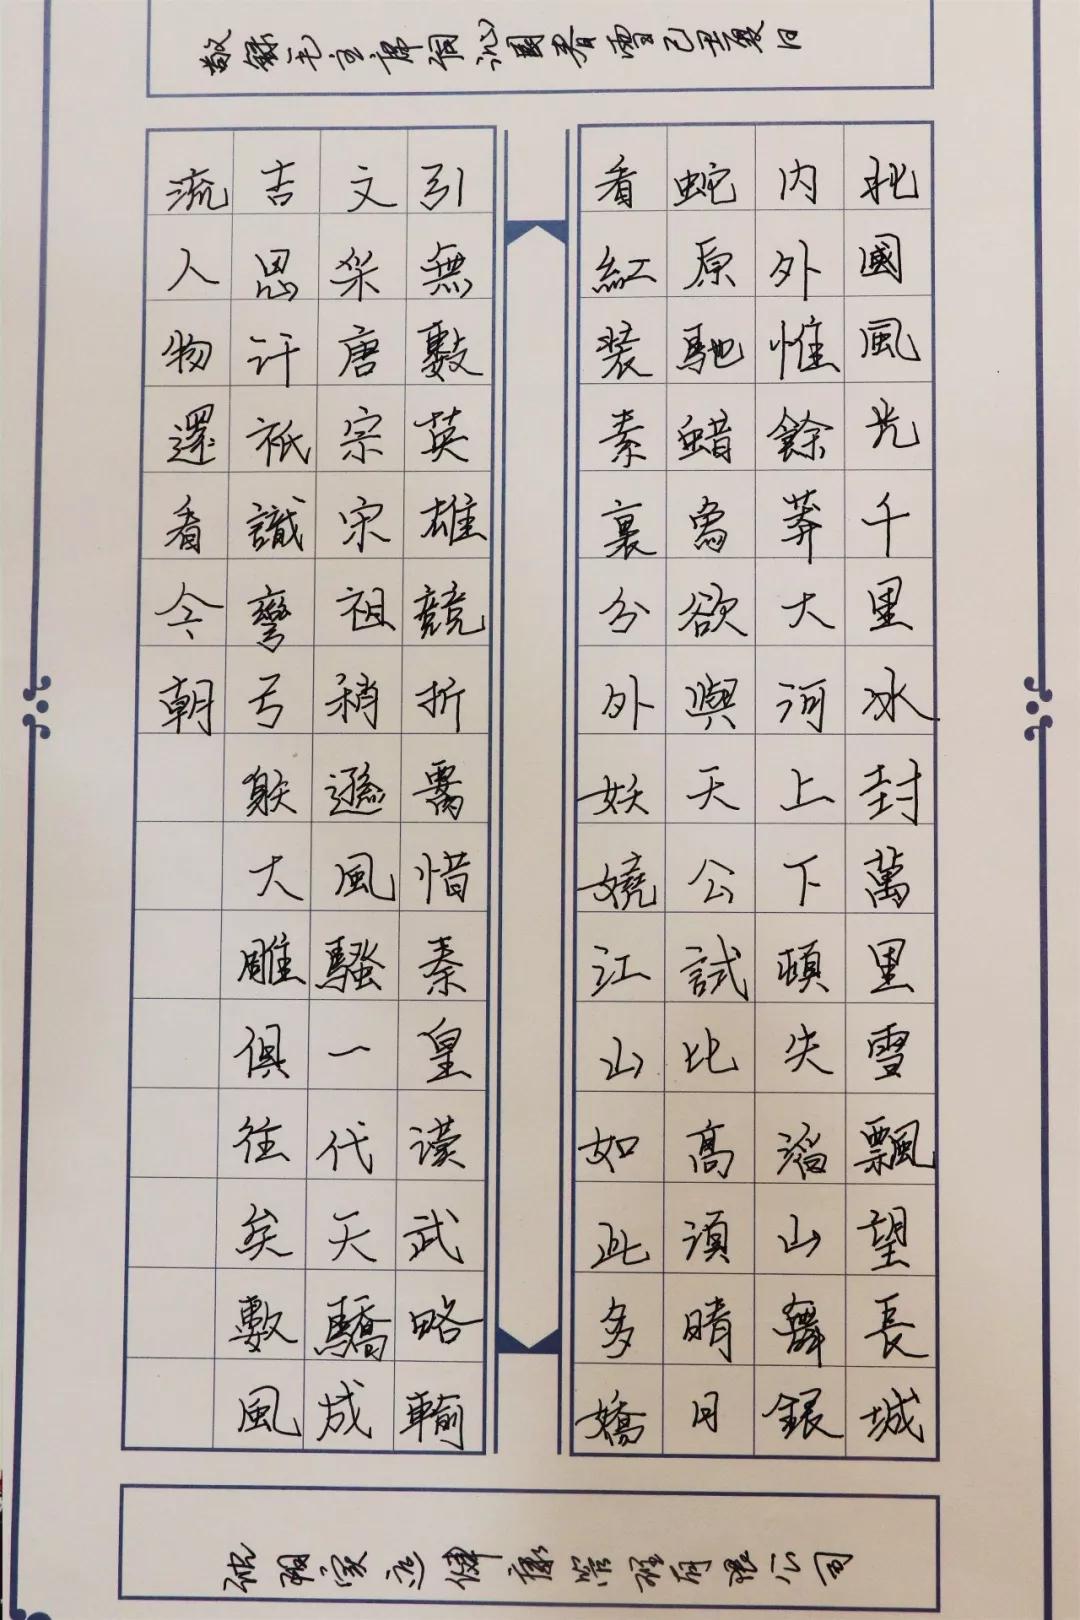 敬錄毛主席詞沁園春雪己丑夏日
北國風光千里冰封萬里雪飄望長城
内外惟餘莽大河上下頓失滔山舞銀
蛇原馳蜡象欲與天公試比高須晴日
看紅装素裹分外妖嬈江山如此多嬌
引無數英雄競折腰惜秦皇漢武略輸
文采唐宗宋祖稍遜風騷一代天驕成
吉思汗祇識彎弓射大雕俱往矣數風
流人物還看今朝
健康管理有限公司